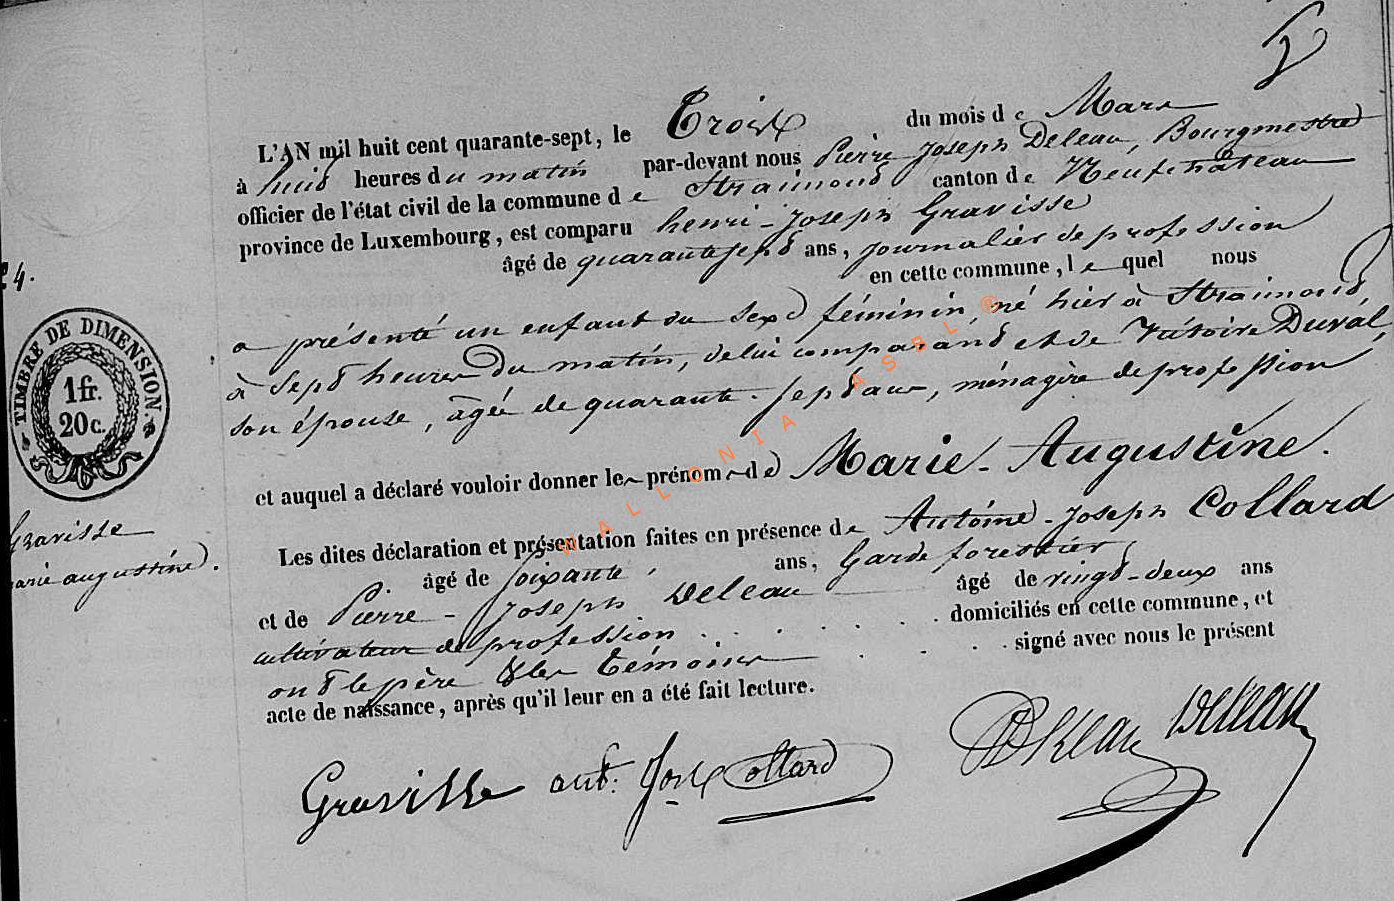 L'AN mil huit cent quarante-sept, le Trois du mois de Mars
à huit heures du matin par-devant nous Pierre Joseph Deleau, Bourgmestre
officier de l'état civil de la commune de Straimont canton de Neufchâteau
province de Luxembourg, est comparu henri-Joseph Gravisse
âgé de quarante sept ans, journalier de profession
en cette commune, lequel nous
24.
a présenté un enfant du sexe féminin, né hier à Straimont,
à Sept heures du matin, de lui comparant et de Victoire Duval,
son épouse, âgée de quarante-sept ans, ménagère de profession
et auquel a déclaré vouloir donner les prénoms de Marie-Augustine.
Les dites déclaration et présentation faites en présence de Antoine-Joseph Collard
âgé de soixante, ans, Garde forestier
et de Pierre-Joseph Deleau âgé de vingt-deux ans
cultivateur de profession . . . . . . . domiciliés en cette commune, et
ont le père & les témoins . . . . signé avec nous le présent
acte de naissance, après qu'il leur en a été fait lecture.
TIMBRE DE DIMENSION.
1 fr.
20 c.
Gravisse
marie augustine.
Gravisse ant. Jos. Collard PJ Deleau Deleau
WALLONIA ASBL ®